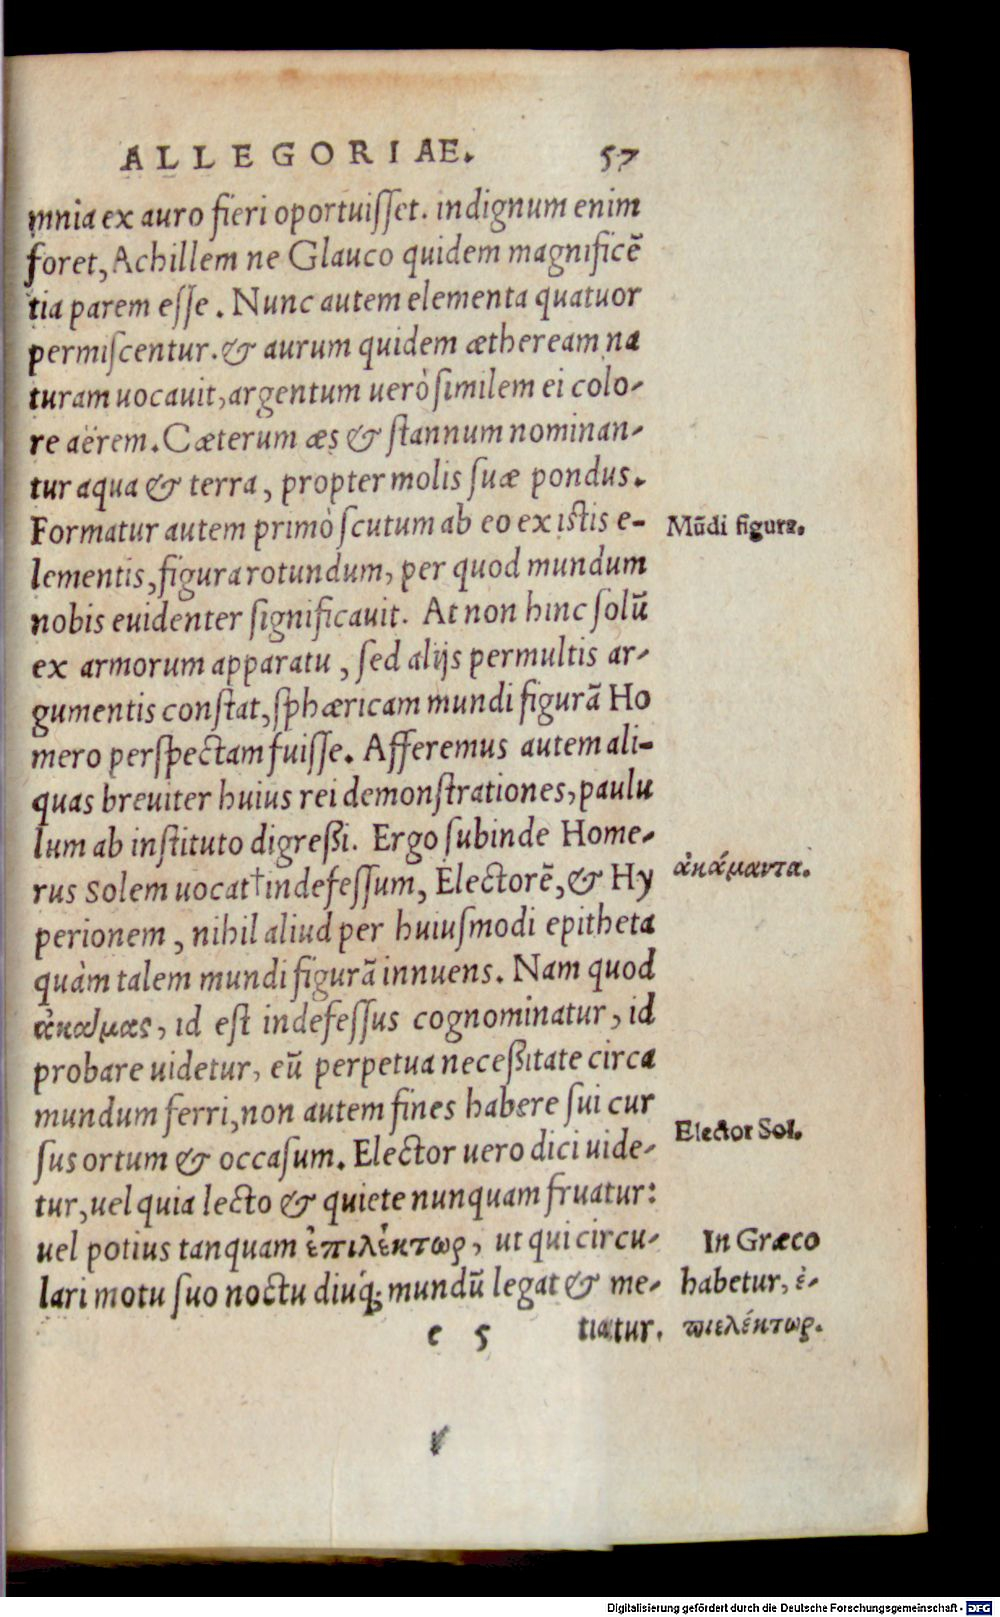 ALLEGORIAE. 57
mnia ex auro fieri oportuiſſet. indignum enim
foret, Achillem ne Glauco quidem magnificẽ
tia parem eſſe. Nunc autem elementa quatuor
permiſcentur. & aurum quidem ætheream na
turam uocauit, argentum uerò ſimilem ei colo-
re aërem. Cæterum æs & ſtannum nominan-
tur aqua & terra, propter molis ſuæ pondus.
Formatur autem primò ſcutum ab eo ex iſtis e-
Mũdi figura.
lementis, figura rotundum, per quod mundum
nobis euidenter ſignificauit. At non hinc ſolũ
ex armorum apparatu, ſed alijs permultis ar-
gumentis conſtat, ſphæricam mundi figurã Ho
mero perſpectam fuiſſe. Afferemus autem ali-
quas breuiter huius rei demonſtrationes, paulu
lum ab inſtituto digreßi. Ergo ſubinde Home-
rus Solem uocat†indefeſſum, Electorẽ, & Hy
ἀκάμαντα.
perionem, nihil aliud per huiuſmodi epitheta
quàm talem mundi figurã innuens. Nam quod
ἀκάμας, id eſt indefeſſus cognominatur, id
probare uidetur, eũ perpetua neceßitate circa
mundum ferri, non autem fines habere ſui cur
ſus ortum & occaſum. Elector uero dici uide-
Elector Sol.
tur, uel quia lecto & quiete nunquam fruatur:
uel potius tanquam ἐπιλέκτωρ, ut qui circu-
In Græco
lari motu ſuo noctu diuq́; mundũ legat & me-
habetur, ἐ-
e 5 tiatur.
πιελέκτωρ.
Digitalisierung gefördert durch die Deutsche Forschungsgemeinschaft - DFG